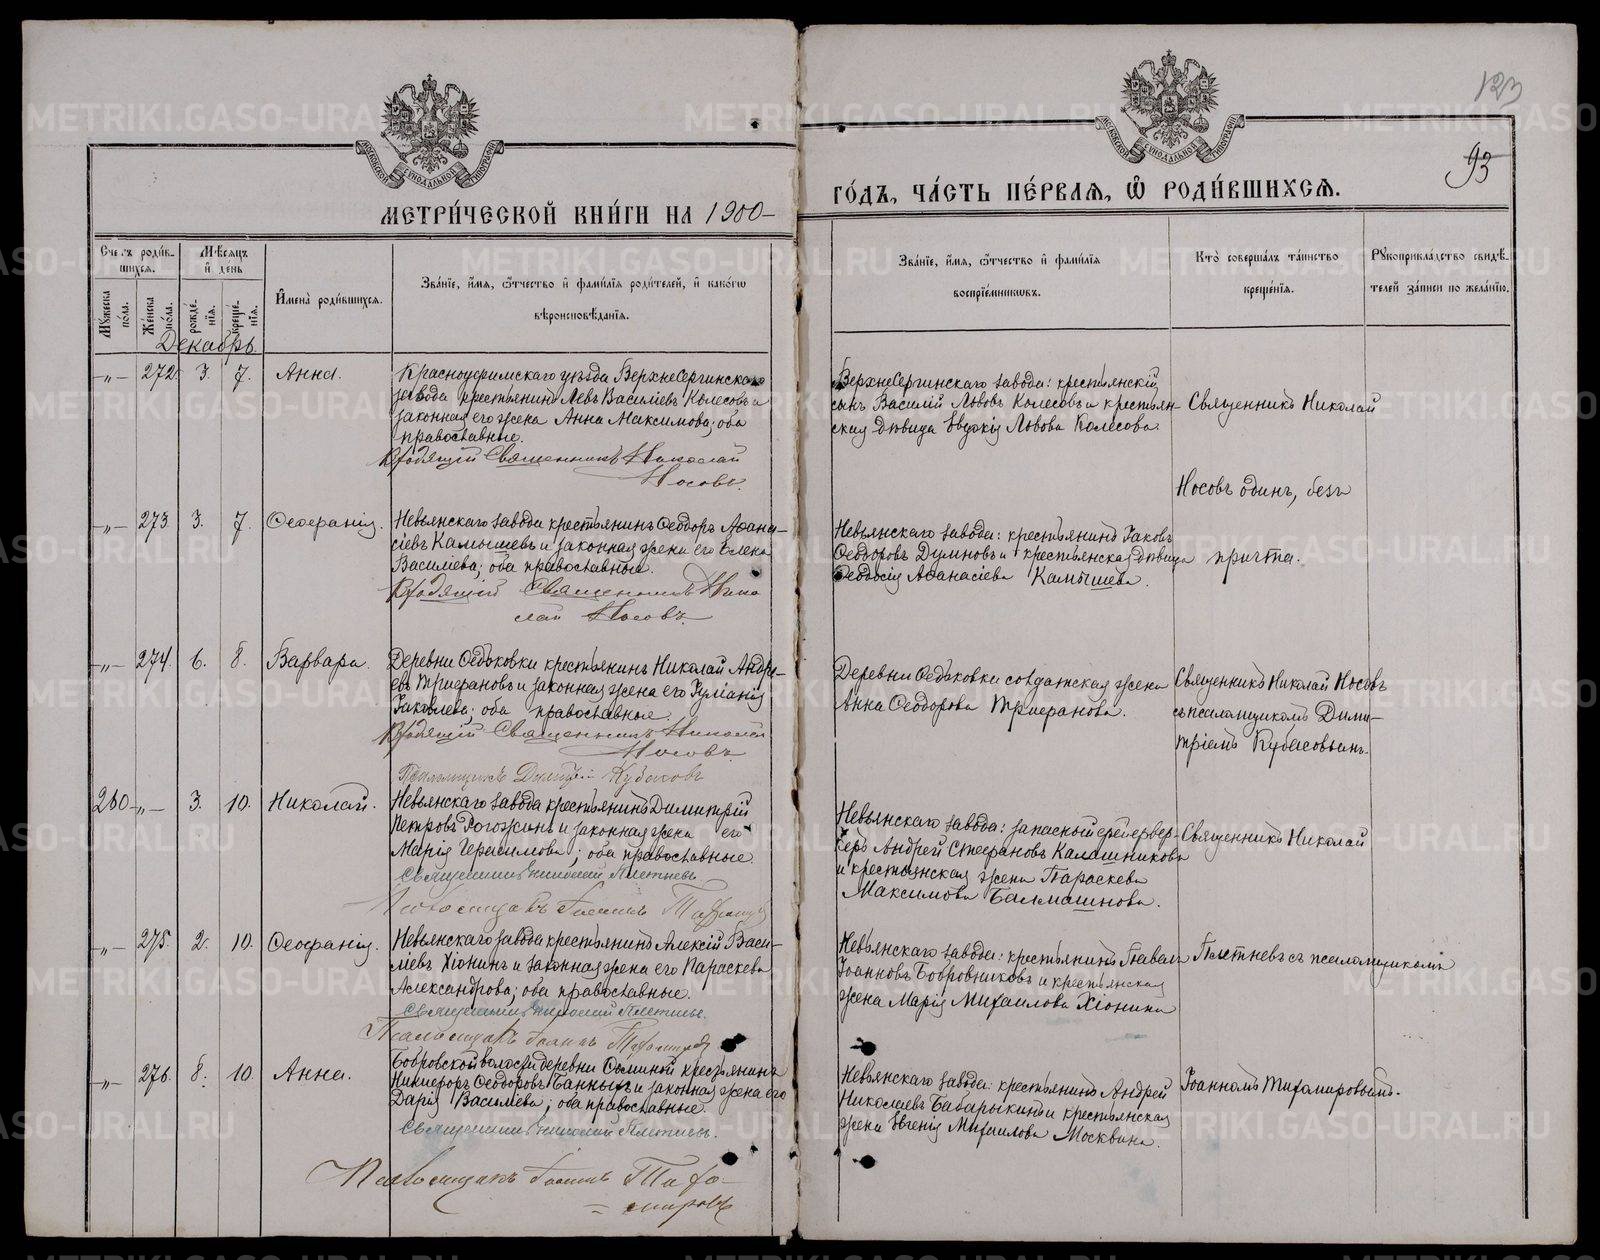 123
93
МОСКОВСКОЙ СѴНОДАЛЬНОЙ ТИПОГРАФІИ
МОСКОВСКОЙ СѴНОДАЛЬНОЙ ТИПОГРАФІИ
МЕТРИ́ЧЕСКОЙ КНИ́ГИ НА 1900
ГО́ДЪ, ЧА́СТЬ ПЕ́РВАЯ, Ѽ РОДИ́ВШИХСЯ.
Счетъ роди́в-
шихся.
Мꙋ́жеска по́ла.
Же́нска по́ла.
Мѣ́сяцъ и҆ день
рожде́-
нїя.
креще́-
нїя.
И҆мена̀ роди́вшихся.
Зва́нїе, и҆́мя, ѻ҆́тчество и҆ фами́лїя роди́телей, и҆ како́гѡ
вѣроисповѣ́данїя.
Зва́нїе, и҆́мя, ѻ҆́тчество и҆ фами́лїя
воспрїе́мниковъ.
Кто̀ соверша́лъ та́инство
креще́нїя.
Рꙋкоприкла́дство свидѣ́-
телей за́писи по жела́нїю.
Декабрь.
-„- 272. 3. 7. Анна.
Красноуфимскаго уѣзда ВерхнеСергинскаго
завода крестьянинъ Левъ Василіевъ Колесовъ и
законная его жена Анна Максимова; оба
православные.
Священникъ Николай
Носовъ.
ВерхнеСергинскаго завода: крестьянскій
сынъ Василій Львовъ Колесовъ и крестьян-
ская дѣвица Евдокія Львова Колесова.
Священникъ Николай
Носовъ одинъ, безъ
причта.
-„- 273. 3. 7. Ѳеофанія.
Невьянскаго завода крестьянинъ Ѳеодоръ Аѳана-
сіевъ Камышевъ и законная жена его Елена
Василіева; оба православные.
Священникъ Нико
лай Носовъ.
Невьянскаго завода: крестьянинъ Іаковъ
Ѳеодоровъ Думновъ и крестьянская дѣвица
Ѳеодосія Аѳанасіева Камышева.
-„- 274. 6. 8. Варвара.
Деревни Ѳедьковки крестьянинъ Николай Андре-
евъ Трифановъ и законная жена его Іуліанія
Іаковлева; оба православные.
Священникъ Николай
Носовъ.
Псаломщикъ Димитрій Кубасовъ
Деревни Ѳедьковки солдатская жена
Анна Ѳеодорова Трифанова.
Священникъ Николай Носовъ
съ псаломщикомъ Дими-
тріемъ Кубасовымъ.
260 -„- 3. 10. Николай.
Невьянскаго завода крестьянинъ Димитрій
Петровъ Рогожинъ и законная жена его
Марія Герасимова; оба православные.
Священникъ Николай Плетневъ.
Псаломщикъ Іоаннъ
Невьянскаго завода: запасный фейервер-
керъ Андрей Стефановъ Калашниковъ
и крестьянская жена Параскева
Максимова Балмашнова.
Священникъ Николай
-„- 275. 2. 10. Ѳеофанія.
Невьянскаго завода крестьянинъ Алексій Васи-
ліевъ Хіонинъ и законная жена его Параскева
Александрова; оба православные.
Священникъ Николай Плетневъ.
Псаломщикъ Іоаннъ Тихомировъ
Невьянскаго завода: крестьянинъ Павелъ
Іоанновъ Бобровниковъ и крестьянская
жена Марія Михаилова Хіонина
Плетневъ съ псаломщикомъ
-„- 276. 8. 10. Анна.
Бобровской волости деревни Ѳоминой крестьянинъ
Никифоръ Ѳеодоровъ Банныхъ и законная жена его
Дарія Василіева; оба православные.
Священникъ Николай Плетневъ.
Псаломщикъ Іоаннъ Тихо-
мировъ
Невьянскаго завода: крестьянинъ Андрей
Николаевъ Бабарыкинъ и крестьянская
жена Евгенія Михаилова Москвина.
Іоанномъ Тихомировымъ.
METRIKI.GASO-URAL.RU